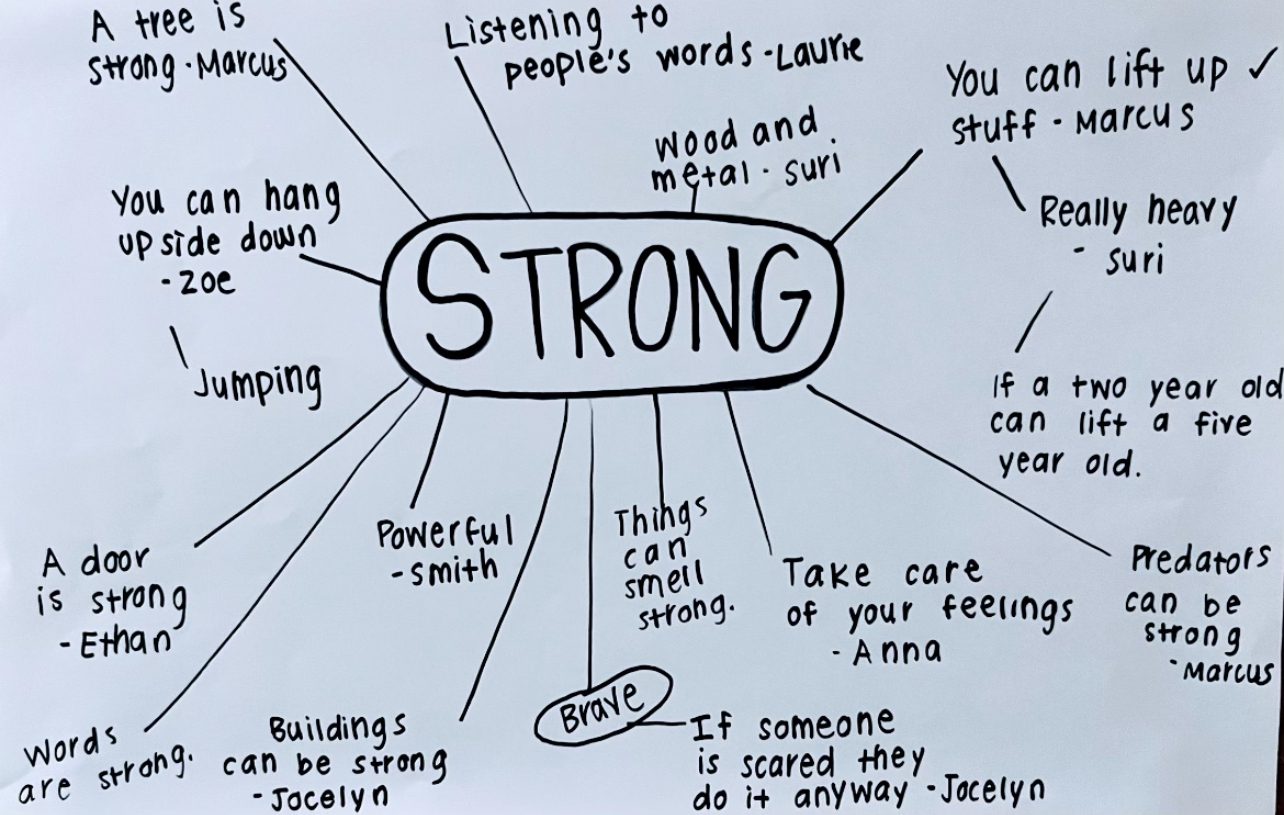 A tree is
strong · Marcus
Listening to
people's words - Laurie
Wood and
metal · suri
You can lift up ✓
stuff - Marcus
Really heavy
- suri
If a two year old
can lift a five
year old.
You can hang
upside down
- Zoe
Jumping
STRONG
A door
is strong
- Ethan
Words
are strong.
Powerful
- smith
Buildings
can be strong
- Jocelyn
Brave
If someone
is scared they
do it anyway - Jocelyn
Things
can
smell
strong.
Take care
of your feelings
- Anna
Predators
can be
strong
- Marcus